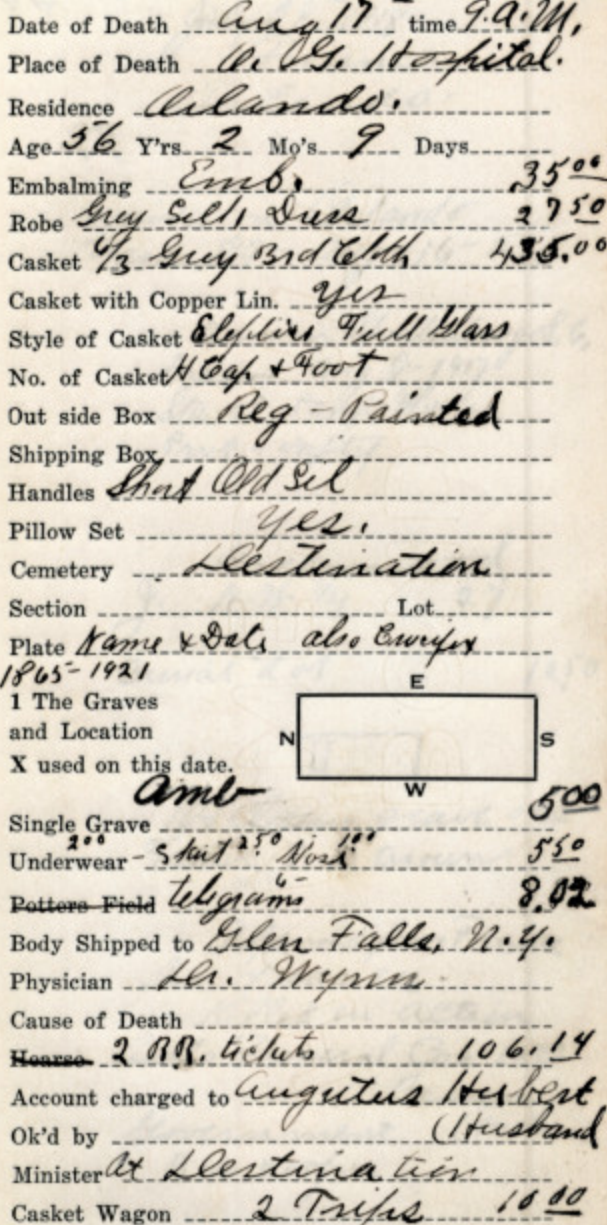 Date of Death Aug 17 time 9.A.M.
Place of Death O. G. Hospital.
Residence Orlando.
Age 56 Y'rs 2 Mo's 9 Days
Embalming Emb. 35 00
Robe Grey Silk Dress 27 50
Casket 6/3 Grey Brd Cloth 435.00
Casket with Copper Lin. yes
Style of Casket Full Glass
No. of Casket H Cap & Foot
Out side Box Reg - Painted
Shipping Box
Handles Short Old Sil
Pillow Set Yes.
Cemetery Destination
Section Lot
Plate Name & Date also Crucifix
1865-1921
E
1 The Graves
and Location
N S
X used on this date.
W
Amb
Single Grave 5 00
2 00 2 50 1 00
Underwear - Skirt Hose 5 50
Potters Field telegrams 8.02
Body Shipped to Glen Falls, N.Y.
Physician Dr. Wynn
Cause of Death
Hearse 2 RR. tickets 106.14
Account charged to Augutus Herbert
Ok'd by (Husband
Minister At Destination
Casket Wagon 2 Trips 10 00